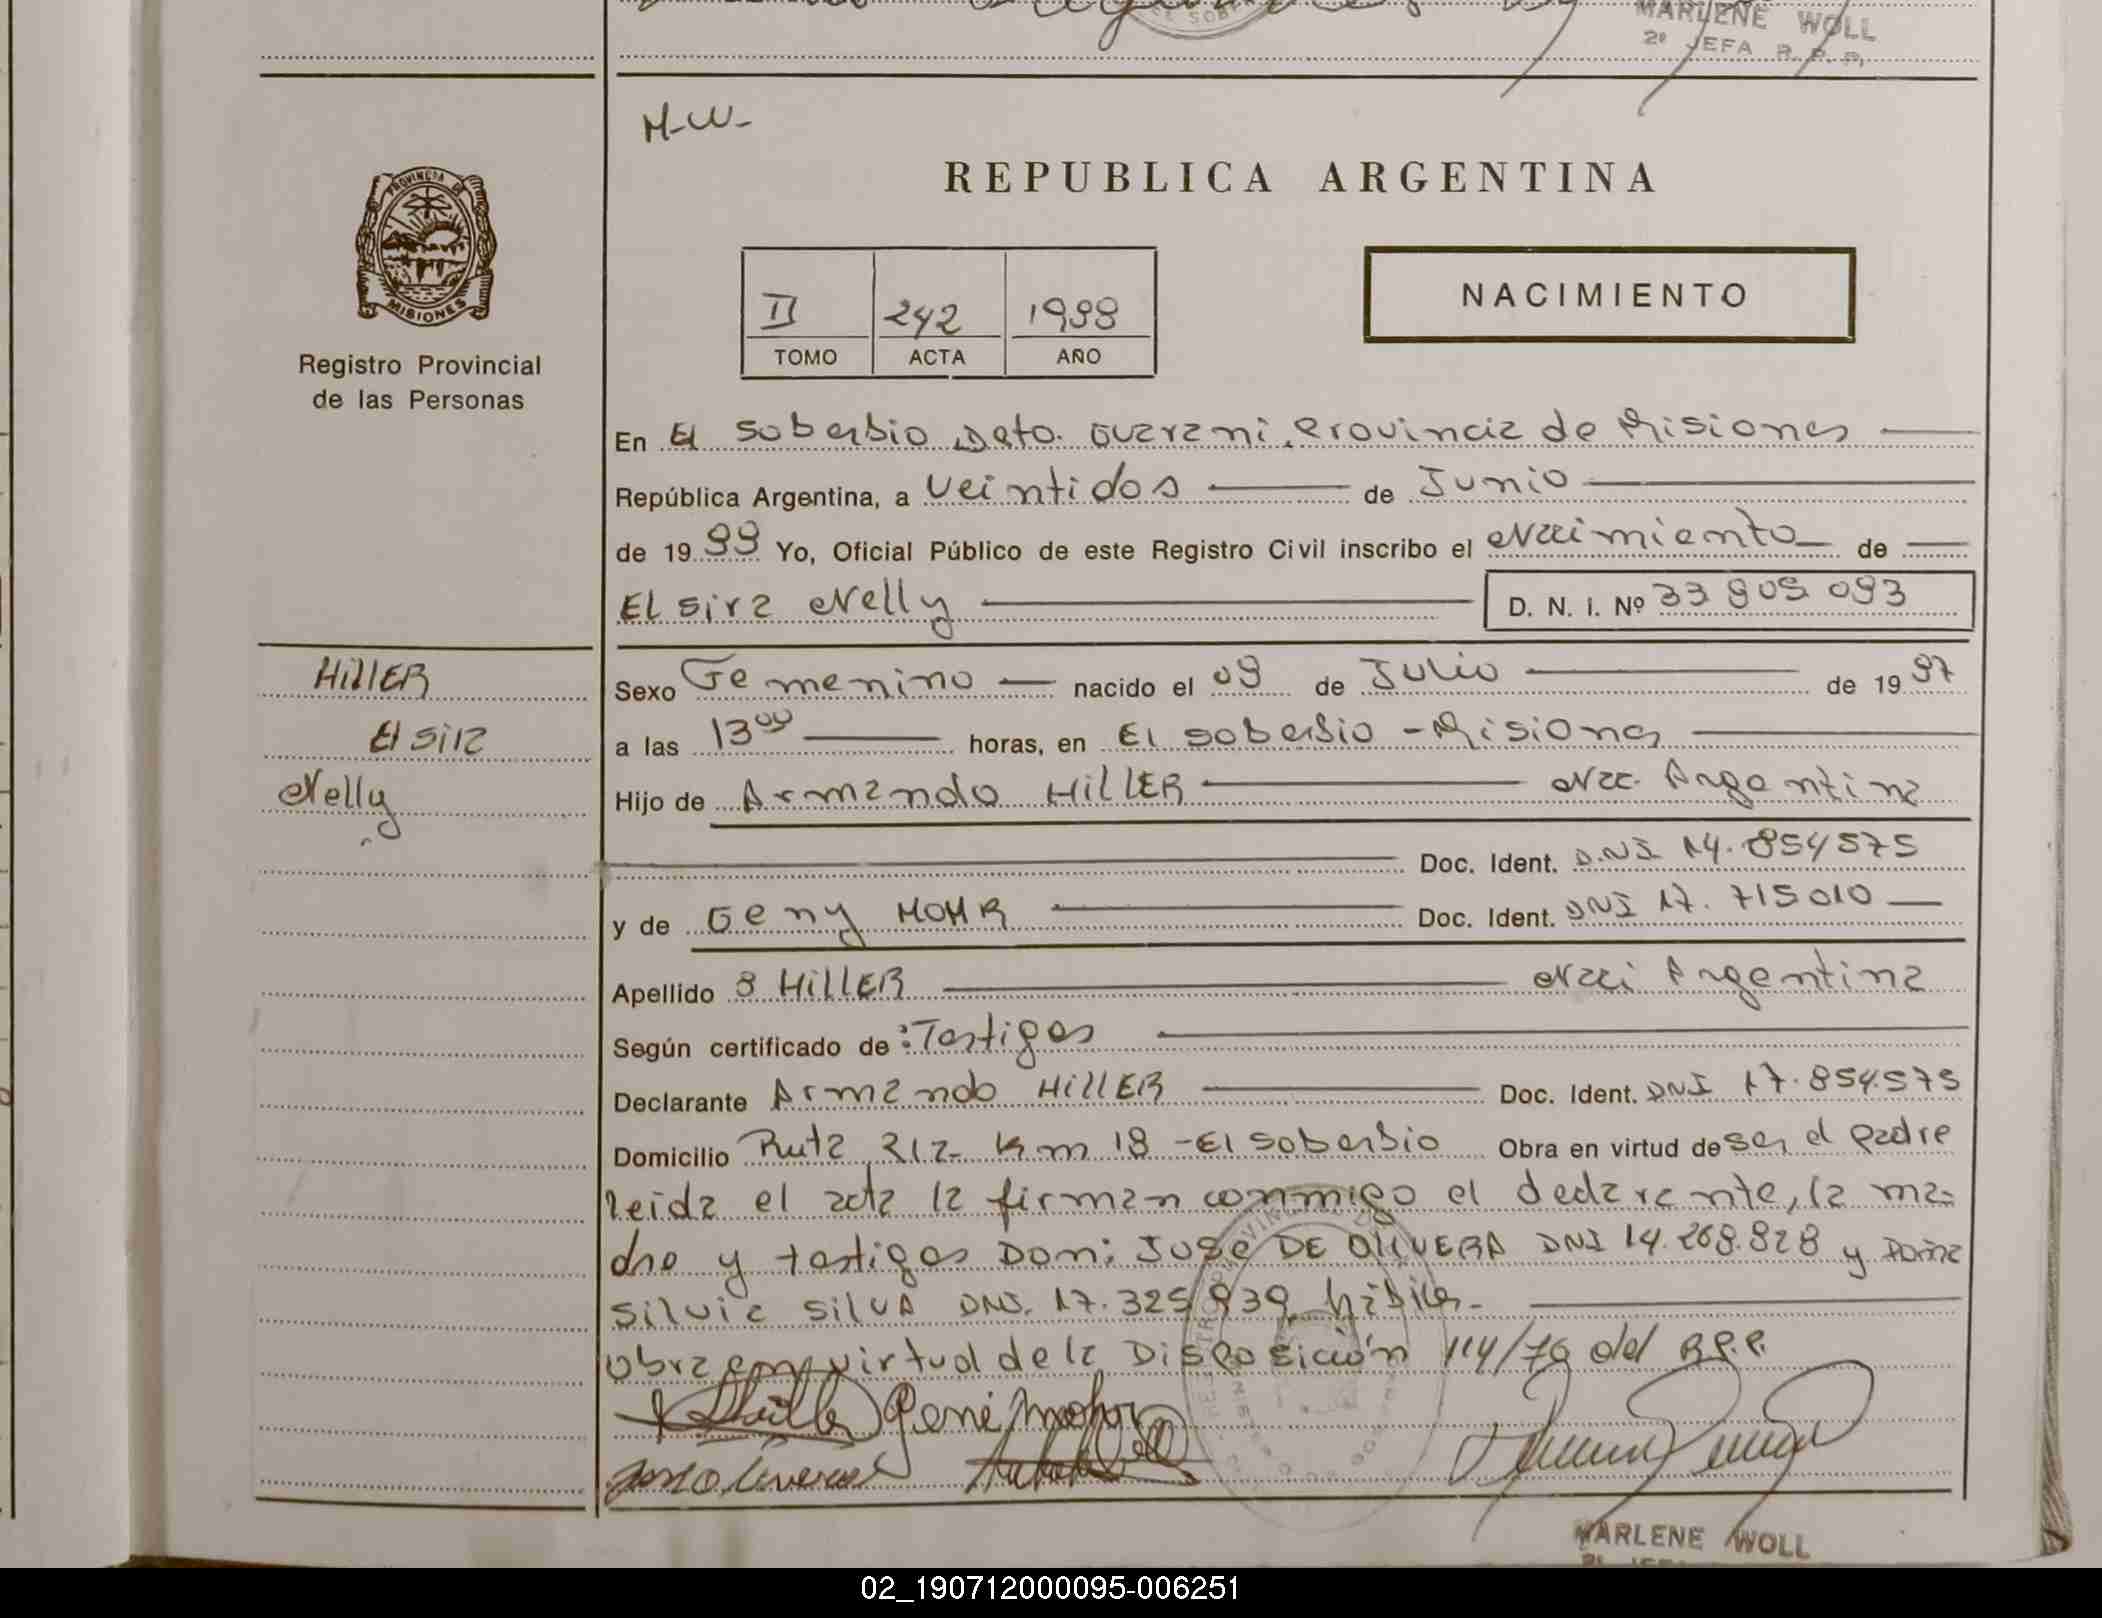 MARLENE WOLL
2º JEFA R. P. P.
M-W-
PROVINCIA DE
MISIONES
Registro Provincial
de las Personas
REPUBLICA ARGENTINA
II 242 1998
TOMO ACTA AÑO
NACIMIENTO
En El Soberbio Dpto. Guarani, Provincia de Misiones
República Argentina, a Veintidos de Junio
de 19 99 Yo, Oficial Público de este Registro Civil inscribo el Nacimiento de
Elsira Nelly D. N. I. Nº 33 909 093
HILLER
Elsira
Nelly
Sexo Femenino nacido el 09 de Julio de 19 97
a las 13⁰⁰ horas, en El Soberbio - Misiones
Hijo de Armando HILLER Nac. Argentina
Doc. Ident. D.N.I 14.854575
y de Geny MOHR Doc. Ident. DNI 17.715010
Apellido 8 HILLER Naci Argentina
Según certificado de: Testigos
Declarante Armando HILLER Doc. Ident. DNI 17.854.575
Domicilio Ruta 212- Km 18 - El Soberbio Obra en virtud de ser el Padre
leida el acta la firman conmigo el declarante, la ma=
dre y testigos Don: Jose DE OLIVERA DNI 14.268.828 y Doña
Silvia SILVA DNI. 17.325.939 hábiles.-
obra en virtud de la Disposición 114/79 del R.P.P.
MARLENE WOLL
02_190712000095-006251